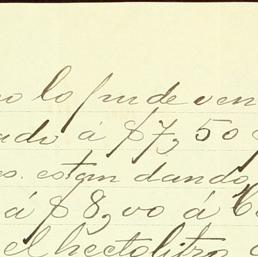 lo pude ven
á $7,50
es. estan dando
á $8,00 á
el hectolitro